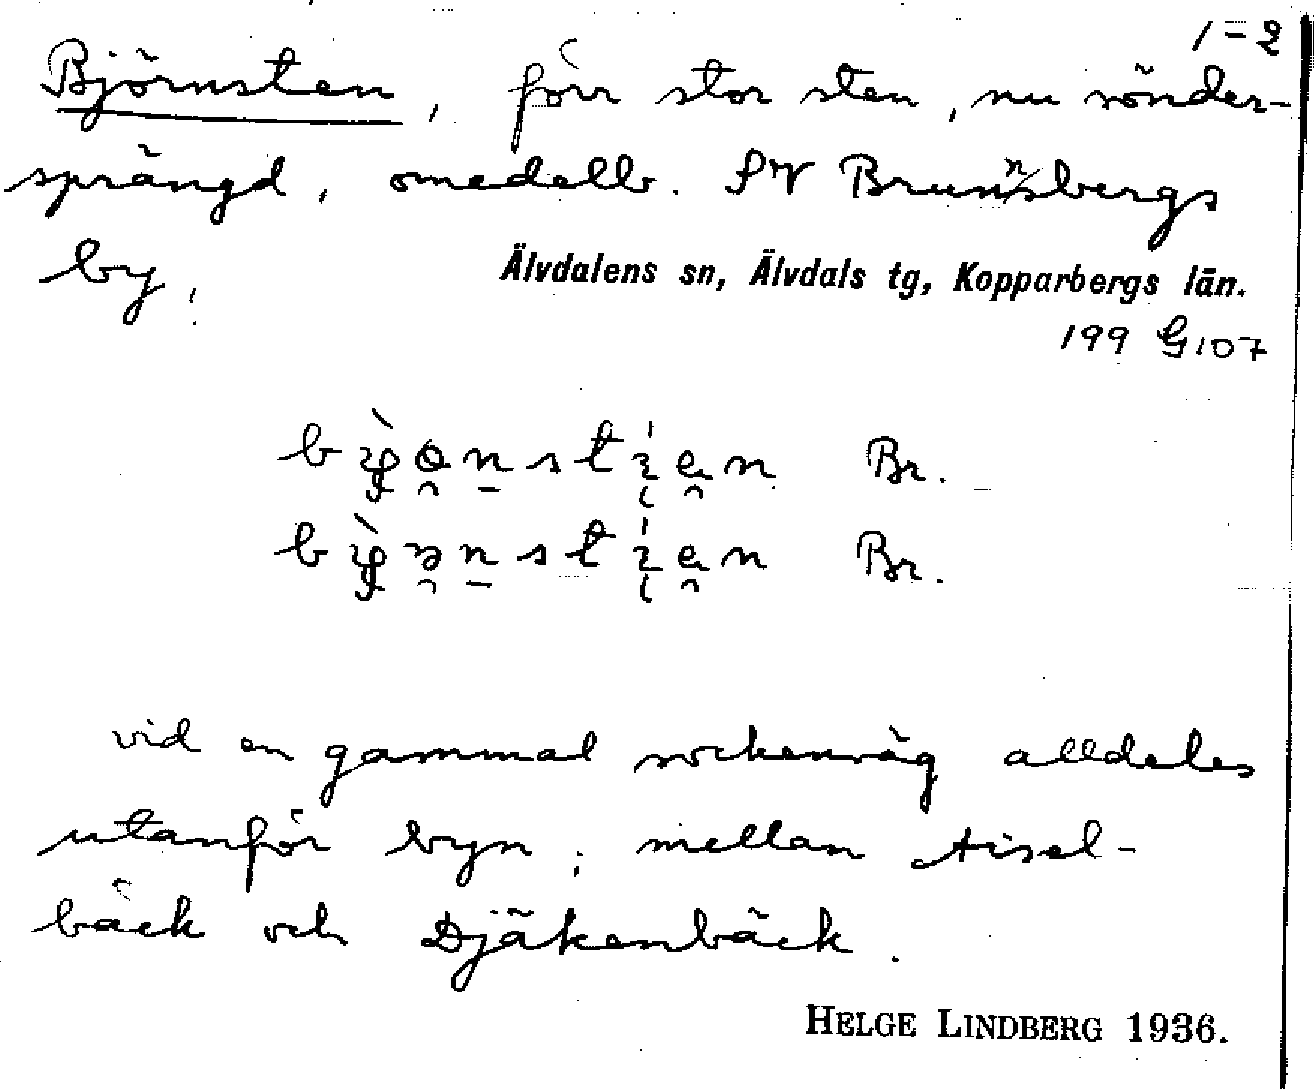 1-2
Björnsten, förr stor sten, nu sönder-
sprängd, omedelb. SV Brunnsbergs
by.
Älvdalens sn, Älvdals tg, Kopparbergs län.
199 G 107
Br.
Br.
vid en gammal sockenväg alldeles
utanför byn; mellan Aisel-
bäck och Djäkenbäck.
HELGE LINDBERG 1936.